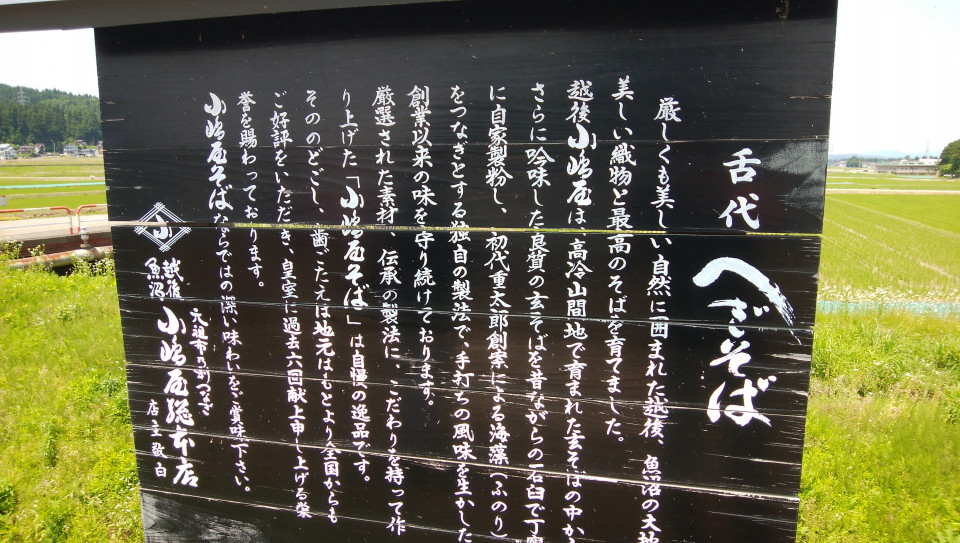 舌代
へぎそば
厳しくも美しい自然に囲まれた越後、魚沼の大地
美しい織物と最高のそばを育てました。
越後小嶋屋は、高冷山間地で育まれた玄そばの中か
さらに吟味した良質の玄そばを昔ながらの石臼で丁
に自家製粉し、初代重太郎創案による海藻(ふのり)
をつなぎとする独自の製法で、手打ちの風味を生かした
創業以来の味を守り続けております。
厳選された素材、伝承の製法に、こだわりを持って作
り上げた「小嶋屋そば」は自慢の逸品です。
そののどごし、歯ごたえは地元はもとより全国からも
ご好評をいただき、皇室に過去六回献上申し上げる栄
誉を賜わっております。
小嶋屋そばならではの深い味わいをご賞味下さい。
小
越後
魚沼
元祖布乃利つなぎ
小嶋屋総本店
店主敬白